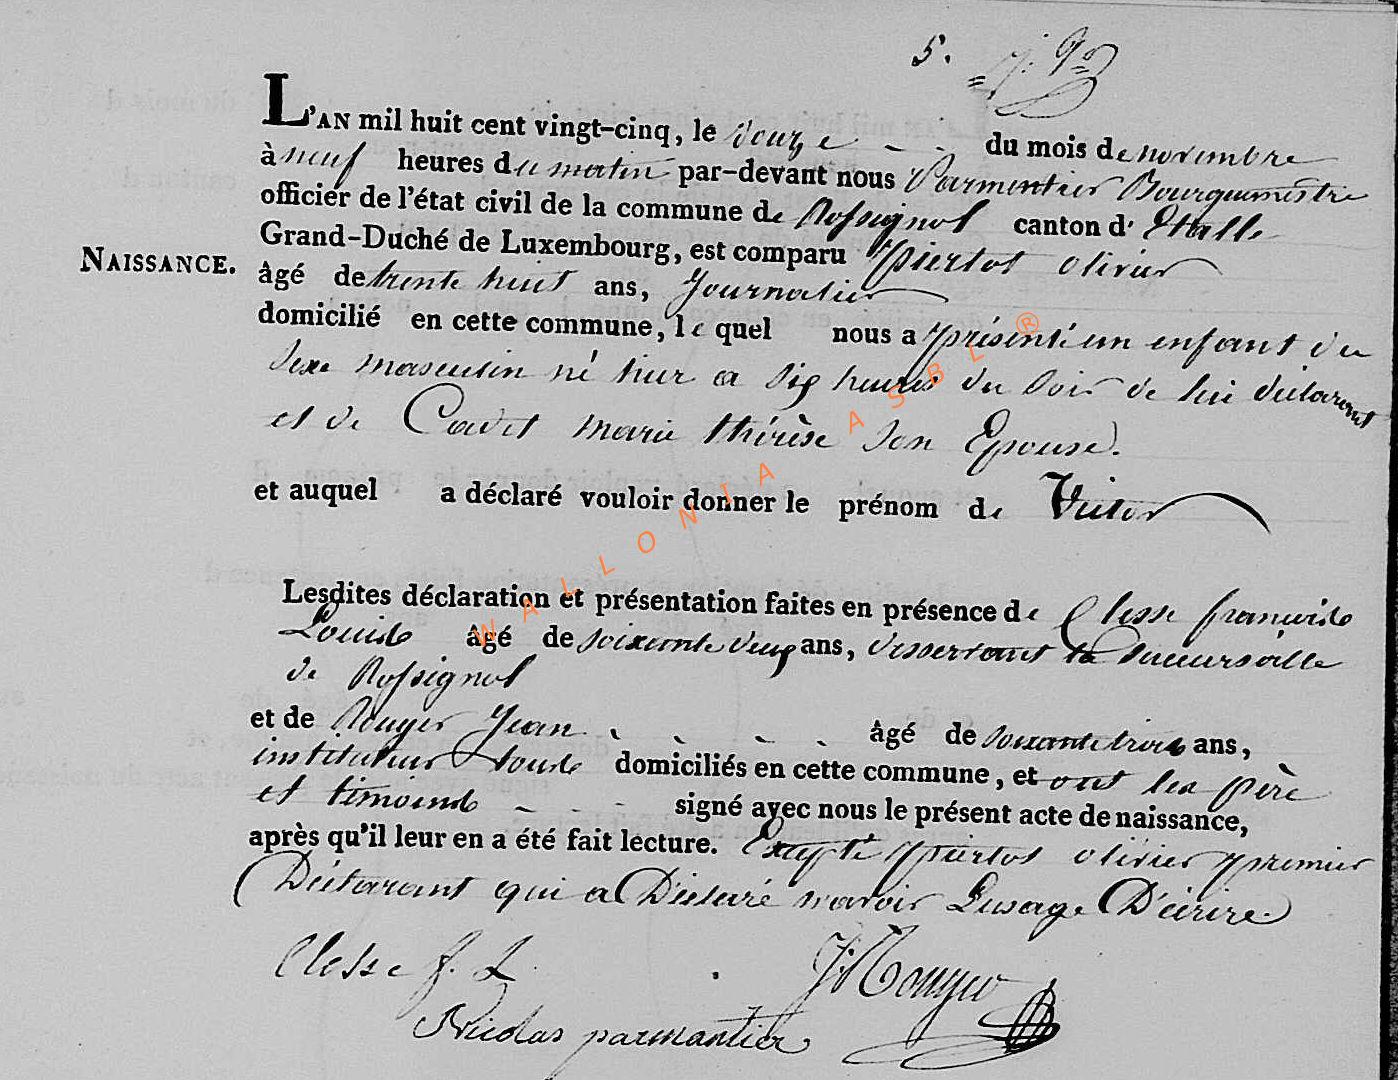 5.
L'AN mil huit cent vingt-cinq, le douze du mois de novembre
à neuf heures du matin par-devant nous Parmentier Bourguemestre
officier de l'état civil de la commune de Rossignol canton d' Etalle
Grand-Duché de Luxembourg, est comparu Pierlot olivier
NAISSANCE.
âgé de trente huit ans, Journalier
domicilié en cette commune, le quel nous a présenté un enfant du
sexe masculin né hier a six heures du soir de lui déclarant
et de Cadet marie thérèse son Epouse.
et auquel a déclaré vouloir donner le prénom de Victor
Lesdites déclaration et présentation faites en présence de Clesse françois
Louis âgé de soixante deux ans, desservant la succursalle
de Rossignol
et de Jean âgé de soixante trois ans,
instituteur tous domiciliés en cette commune, et ont les père
et témoins signé avec nous le présent acte de naissance,
après qu'il leur en a été fait lecture. Excepté pierlot olivier premier
Déclarant qui a Déclaré n'avoir L'usage D'écrire
Clesse f. L.
Nicolas parmantier
WALLONIA ASBL ®